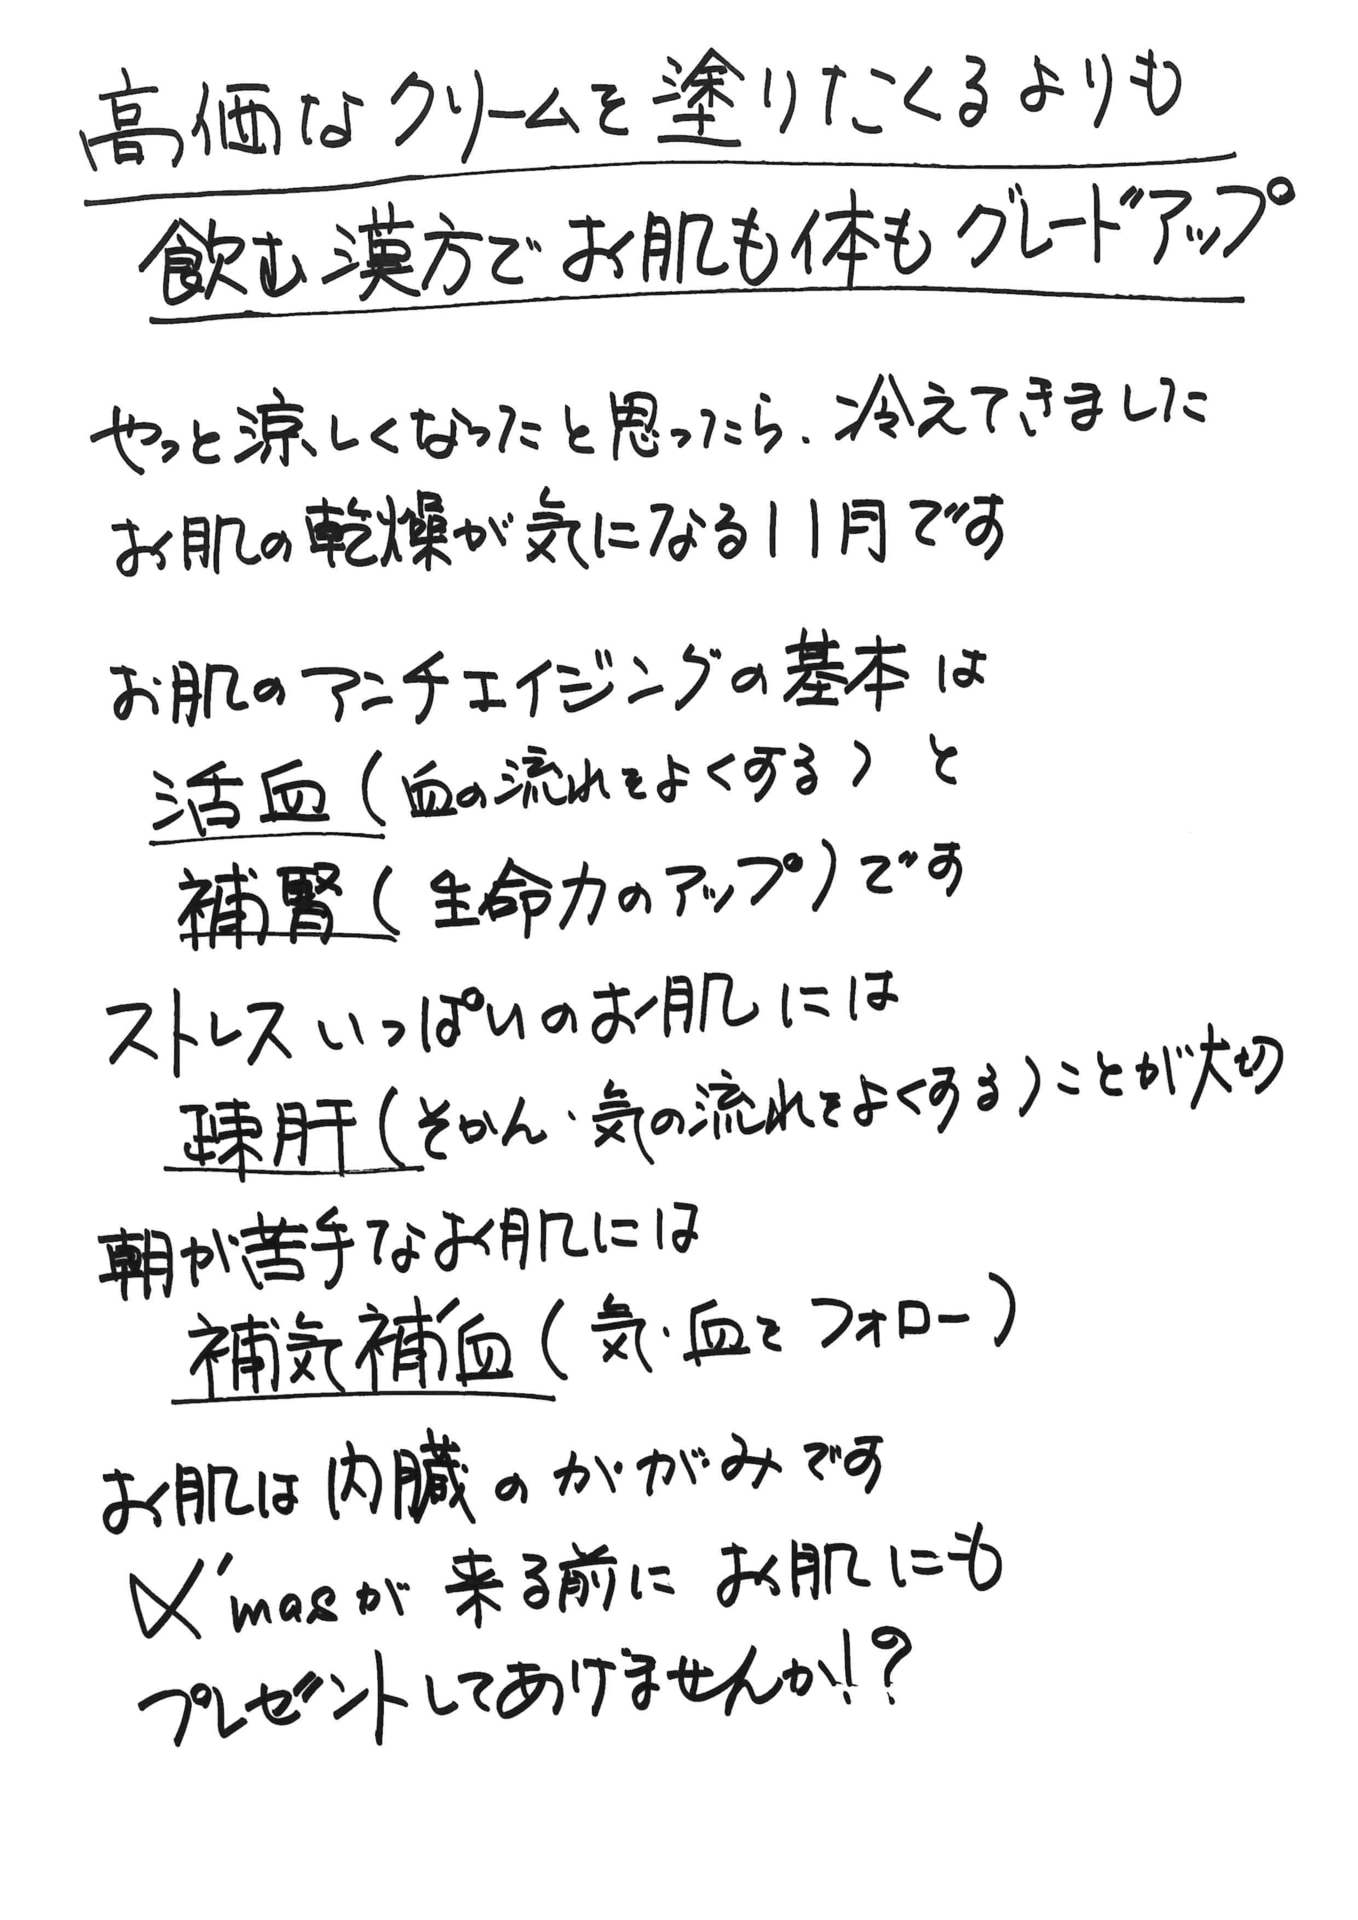 高価なクリームを塗りたくるよりも
飲む漢方でお肌も体もグレードアップ
やっと涼しくなったと思ったら、冷えてきました
お肌の乾燥が気になる11月です
お肌のアンチエイジングの基本は
活血(血の流れをよくする)と
補腎(生命力のアップ)です
ストレスいっぱいのお肌には
疎肝(そかん・気の流れをよくする)ことが大切
朝が苦手なお肌には
補気補血(気・血をフォロー)
お肌は内臓のかがみです
X'masが来る前にお肌にも
プレゼントしてあげませんか!?